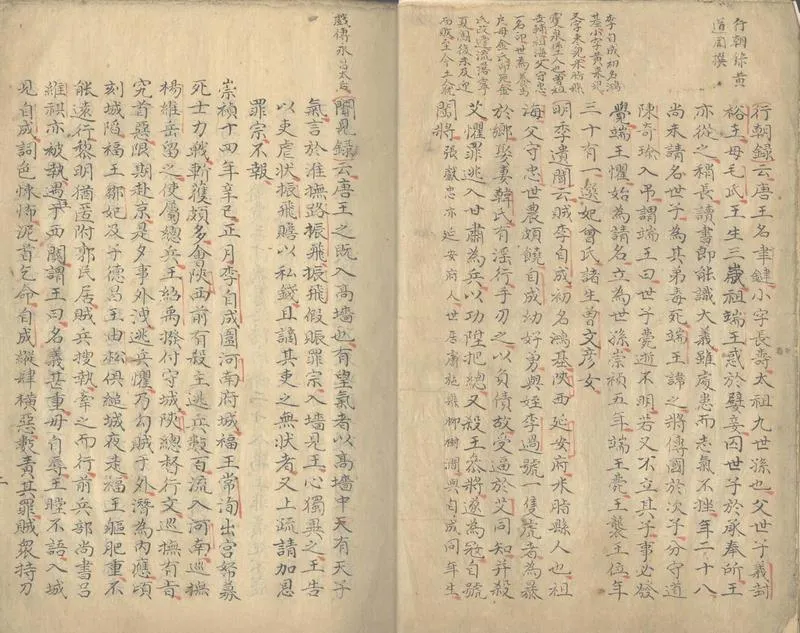 行朝錄黃
道周撰
行朝錄云唐王名聿鍵小字長壽太祖九世孫也父世子義封
裕王母毛氏王生三歲祖端王惑於嬖妾囚世子於承奉所王
亦從之稍長讀書即能識大義雖處患而志氣不挫年二十八
尚未請名世子為其弟毒死端王諱之將傳國於次子分守道
陳奇瑜入吊謂端王曰世子薨逝不明若又不立其子事必發
覺端王懼始為請名立為世孫崇禎五年端王薨王襲王位年
三十有一選妃曾氏諸生曾文彥女
李自成初名鴻
基小字黃來兒
又字
明李遺聞云賊李自成初名鴻基陝西延安府米脂縣人也祖
海父守忠世農頗饒自成幼好勇與姪李過號一隻虎者為暴
於鄉娶妻韓氏有淫行手刃之以負債故受逼於艾同知并殺
艾懼罪逃入甘肅為兵以功陞把總又殺王叅將遂為寇自號
闖將張獻忠亦延安府人世居膚施縣柳樹澗與自成同年生
聞見録云唐王之既入高墻也有望氣者以高墻中天有天子
氣言於淮撫路振飛振飛假賑罪宗入墻見王心獨異之王告
以吏虐狀振飛贍以私錢且謫其吏之無狀者又上疏請加恩
罪宗不報
崇禎十四年辛巳正月李自成圍河南府城福王常洵出宮帑募
死士力戰斬獲頗多會陝西前有殺主逃兵數百流入河南巡撫
楊維岳留之使屬總兵王紹禹撥付守城陝總督行文巡撫有旨
究首惡限期赴京是夕事外洩逃兵懼乃勾賊于外濟為內應頃
刻城陷福王鄒妃及子德昌王由松俱縋城夜走福王軀肥重不
能遠行黎明猶匿附郭民居賊兵搜執牽之而行前兵部尚書呂
維祺亦被執遇于西關謂王曰名義甚重毋自辱王瞠不語入城
見自成詞色悚怖泥首乞命自成縱肆橫惡數責其罪賊眾持刀